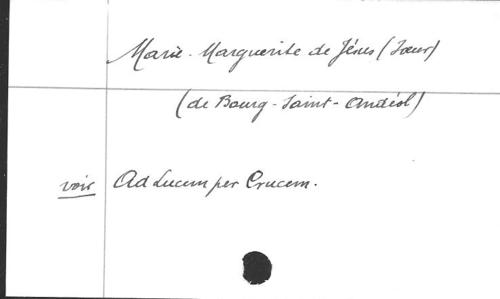 Marie-Marguerite de Jésus (Sœur)
(de Bourg-Saint-Andéol)
voir Ad Lucem per Crucem.